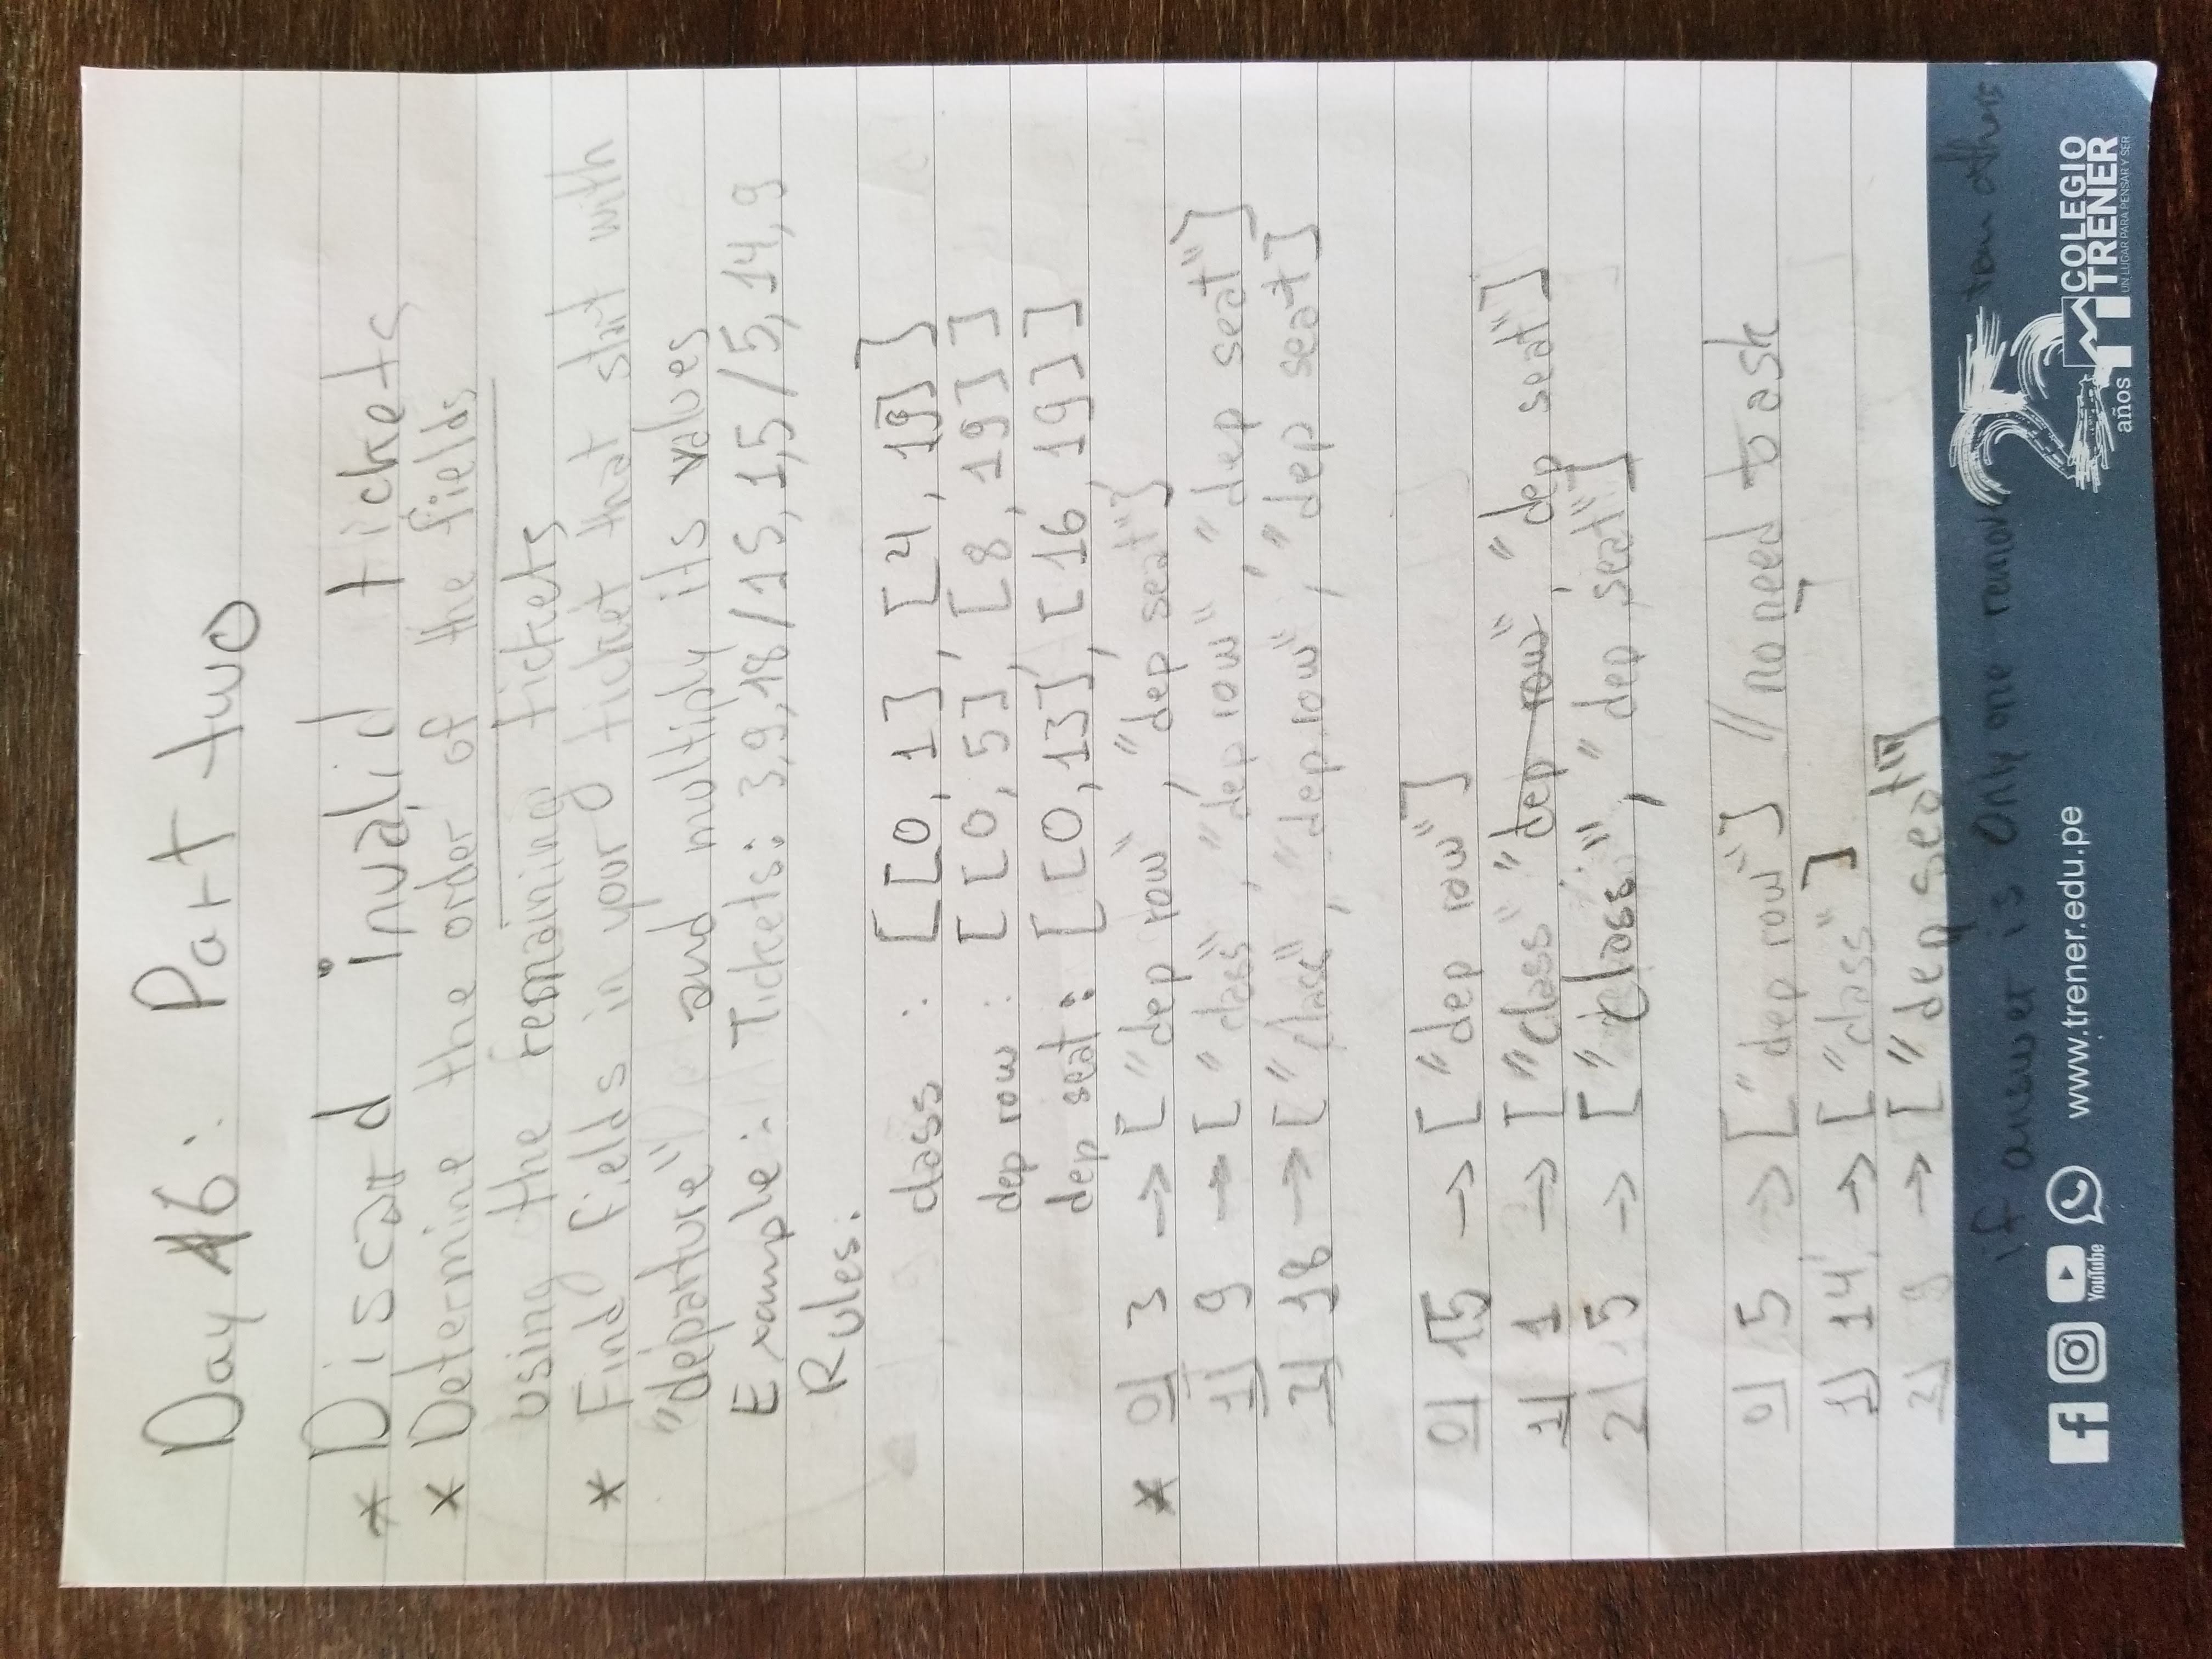 Day 16: Part two
* Discard invalid tickets
* Determine the order of the fields
using the remaining tickets
* Find fields in your ticket that start with
"departure" and multiply its values
Example: Tickets: 3,9,18/15,1,5/5,14,9
Rules:
class : [[0,1],[4,19]]
dep row : [[0,5],[8,19]]
dep seat: [[0,13],[16,19]]
* 0| 3 -> ["dep row", "dep seat"]
1| 9 -> ["class", "dep row", "dep seat"]
18 -> ["class", "dep row", "dep seat]
0| 15 -> ["dep row"]
1| 1 -> ["class", "dep row", "dep seat"]
2| 5 -> ["class", "dep seat"]
0| 5 -> ["dep row"] // no need to ask
1| 14 -> ["class"]
2| 9 -> ["dep seat"]
if answer is only one remove others
YouTube
www.trener.edu.pe
25 años
COLEGIO
TRENER
UN LUGAR PARA PENSAR Y SER